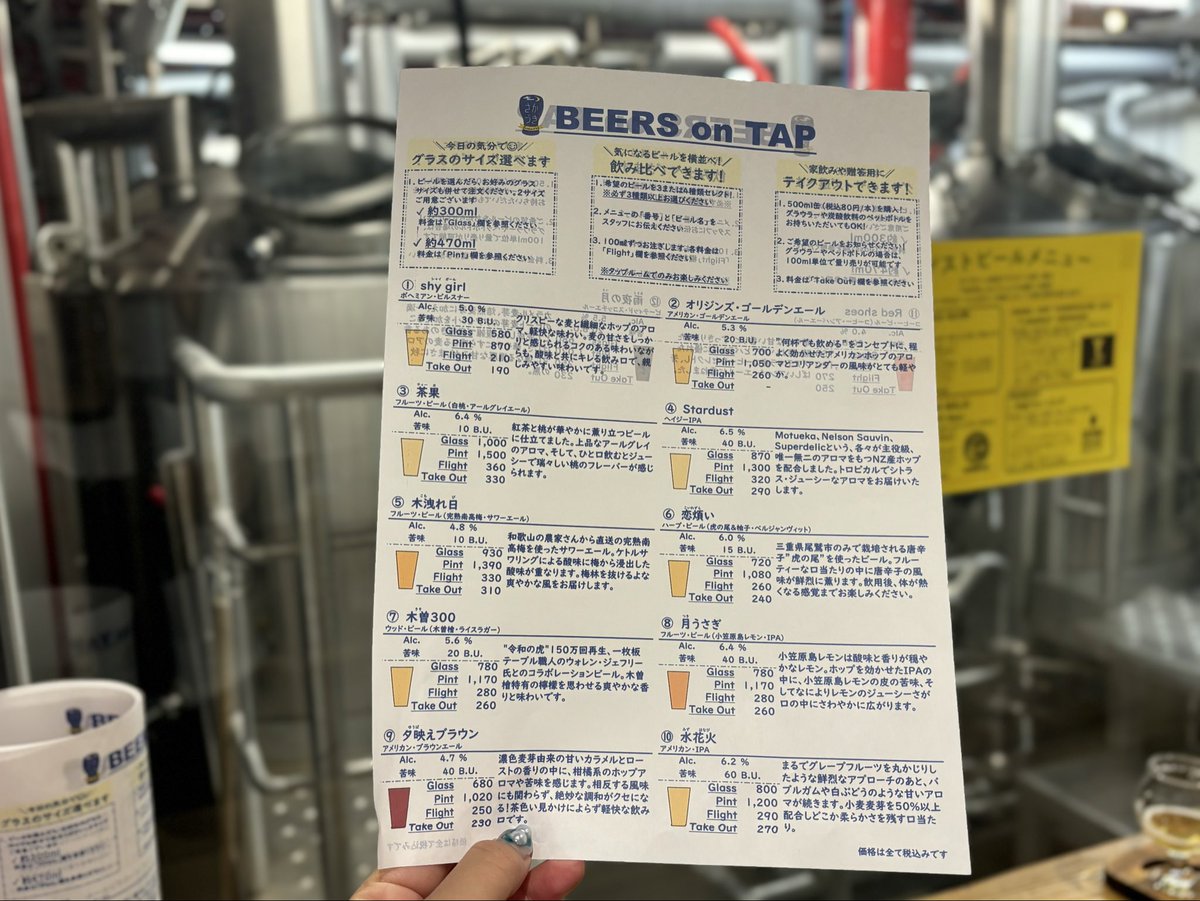 BEERS on TAP
＼今日の気分で／
グラスのサイズ選べます
1. ビールを選んだら、お好みのグラス
サイズも併せて注文ください。2サイズ
ご用意ございます
✓ 約300ml
料金は「Glass」欄を参照ください
✓ 約470ml
料金は「Pint」欄を参照ください
＼気になるビールを横並べ！／
飲み比べできます！
1. 希望のビールを3または4種類セレクト！
※必ず3種類以上お選びください
2. メニューの「番号」と「ビール名」を
スタッフにお伝えください
3. 100mlずつお注ぎします。各料金は
「Flight」欄を参照ください
※タップルームでのみお楽しみください
＼家飲みや贈答用に／
テイクアウトできます！
1. 500ml缶(税込80円/本)を購入！
グラウラーや炭酸飲料のペットボトルを
お持ちいただいてもOK！
2. ご希望のビールをお知らせください
グラウラーやペットボトルの場合は、
100ml単位で量り売りが可能です
3. 料金は「Take Out」欄を参照ください
① shy girl
ボヘミアン・ピルスナー
Alc. 5.0 %
苦味 30 B.U.
Glass 580
Pint 870
Flight 210
Take Out 190
クリスピーな麦と繊細なホップのアロ
マ、軽快な味わい。麦の甘さをしっか
りと感じられるコクのある味わいなが
らも、酸味と共にキレる飲み口で、親
しみやすい味わいです。
② オリジンズ・ゴールデンエール
アメリカン・ゴールデンエール
Alc. 5.3 %
苦味 20 B.U.
Glass 700
Pint 1,050
Flight 260
Take Out -
"何杯でも飲める"をコンセプトに、程
よく効かせたアメリカンホップのアロ
マとコリアンダーの風味がとても軽や
か。
③ 茶果
フルーツ・ビール(白桃・アールグレイエール)
Alc. 6.4 %
苦味 10 B.U.
Glass 1,000
Pint 1,500
Flight 360
Take Out 330
紅茶と桃が華やかに薫り立つビール
に仕立てました。上品なアールグレイ
のアロマ、そして、ひと口飲むとジュー
シーで瑞々しい桃のフレーバーが感じ
られます。
④ Stardust
ヘイジーIPA
Alc. 6.5 %
苦味 40 B.U.
Glass 870
Pint 1,300
Flight 320
Take Out 290
Motueka、Nelson Sauvin、
Superdelicという、各々が主役級、
唯一無二のアロマをもつNZ産ホップ
を配合しました。トロピカルでシトラ
ス・ジューシーなアロマをお届けいた
します。
⑤ 木洩れ日
フルーツ・ビール(完熟南高梅・サワーエール)
Alc. 4.8 %
苦味 10 B.U.
Glass 930
Pint 1,390
Flight 330
Take Out 310
和歌山の農家さんから直送の完熟南
高梅を使ったサワーエール。ケトルサ
ワリングによる酸味に梅から浸出した
酸味が重なります。梅林を抜けるよな
爽やかな風をお届けします。
⑥ 恋煩い
ハーブ・ビール(虎の尾&柚子・ベルジャンヴィット)
Alc. 6.0 %
苦味 15 B.U.
Glass 720
Pint 1,080
Flight 260
Take Out 240
三重県尾鷲市のみで栽培される唐辛
子"虎の尾"を使ったビール。フルー
ティーな口当たりの中に唐辛子の風
味が鮮烈に薫ります。飲用後、体が熱
くなる感覚までお楽しみください。
⑦ 木曽300
ウッド・ビール(木曽檜・ライスラガー)
Alc. 5.6 %
苦味 20 B.U.
Glass 780
Pint 1,170
Flight 280
Take Out 260
"令和の虎"150万回再生、一枚板
テーブル職人のウォレン・ジェフリー
氏とのコラボレーションビール。木曽
檜特有の檸檬を思わせる爽やかな香
りと味わいです。
⑧ 月うさぎ
フルーツ・ビール(小笠原島レモン・IPA)
Alc. 6.4 %
苦味 40 B.U.
Glass 780
Pint 1,170
Flight 280
Take Out 260
小笠原島レモンは酸味と香りが穏や
かなレモン。ホップを効かせたIPAの
中に、小笠原島レモンの皮の苦味、そ
してなによりレモンのジューシーさが
口の中にさわやかに広がります。
⑨ 夕映えブラウン
アメリカン・ブラウンエール
Alc. 4.7 %
苦味 40 B.U.
Glass 680
Pint 1,020
Flight 250
Take Out 230
濃色麦芽由来の甘いカラメルとロー
ストの香りの中に、柑橘系のホップアロ
マや苦味を感じます。相反する風味
にも関わらず、絶妙な調和がクセにな
る！茶色い見かけによらず軽快な飲み
口です。
⑩ 水花火
アメリカン・IPA
Alc. 6.2 %
苦味 60 B.U.
Glass 800
Pint 1,200
Flight 290
Take Out 270
まるでグレープフルーツを丸かじりし
たような鮮烈なアプローチのあと、バ
ブルガムや白ぶどうのような甘いアロ
マが続きます。小麦麦芽を50%以上
配合しどこか柔らかさを残す口当た
り。
価格は全て税込みです